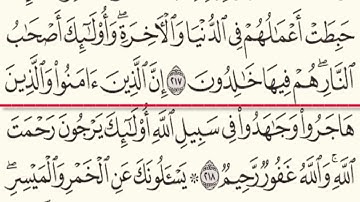 حَبِطَتْ أَعْمَٰلُهُمْ فِى ٱلدُّنْيَا وَٱلْءَاخِرَةِ ۖ وَأُو۟لَٰٓئِكَ أَصْحَٰبُ
ٱلنَّارِ ۖ هُمْ فِيهَا خَٰلِدُونَ ٢١٧ إِنَّ ٱلَّذِينَ ءَامَنُوا۟ وَٱلَّذِينَ
هَاجَرُوا۟ وَجَٰهَدُوا۟ فِى سَبِيلِ ٱللَّهِ أُو۟لَٰٓئِكَ يَرْجُونَ رَحْمَتَ
ٱللَّهِ ۚ وَٱللَّهُ غَفُورٌ رَّحِيمٌ ٢١٨ ۞ يَسْـَٔلُونَكَ عَنِ ٱلْخَمْرِ وَٱلْمَيْسِرِ ۖ